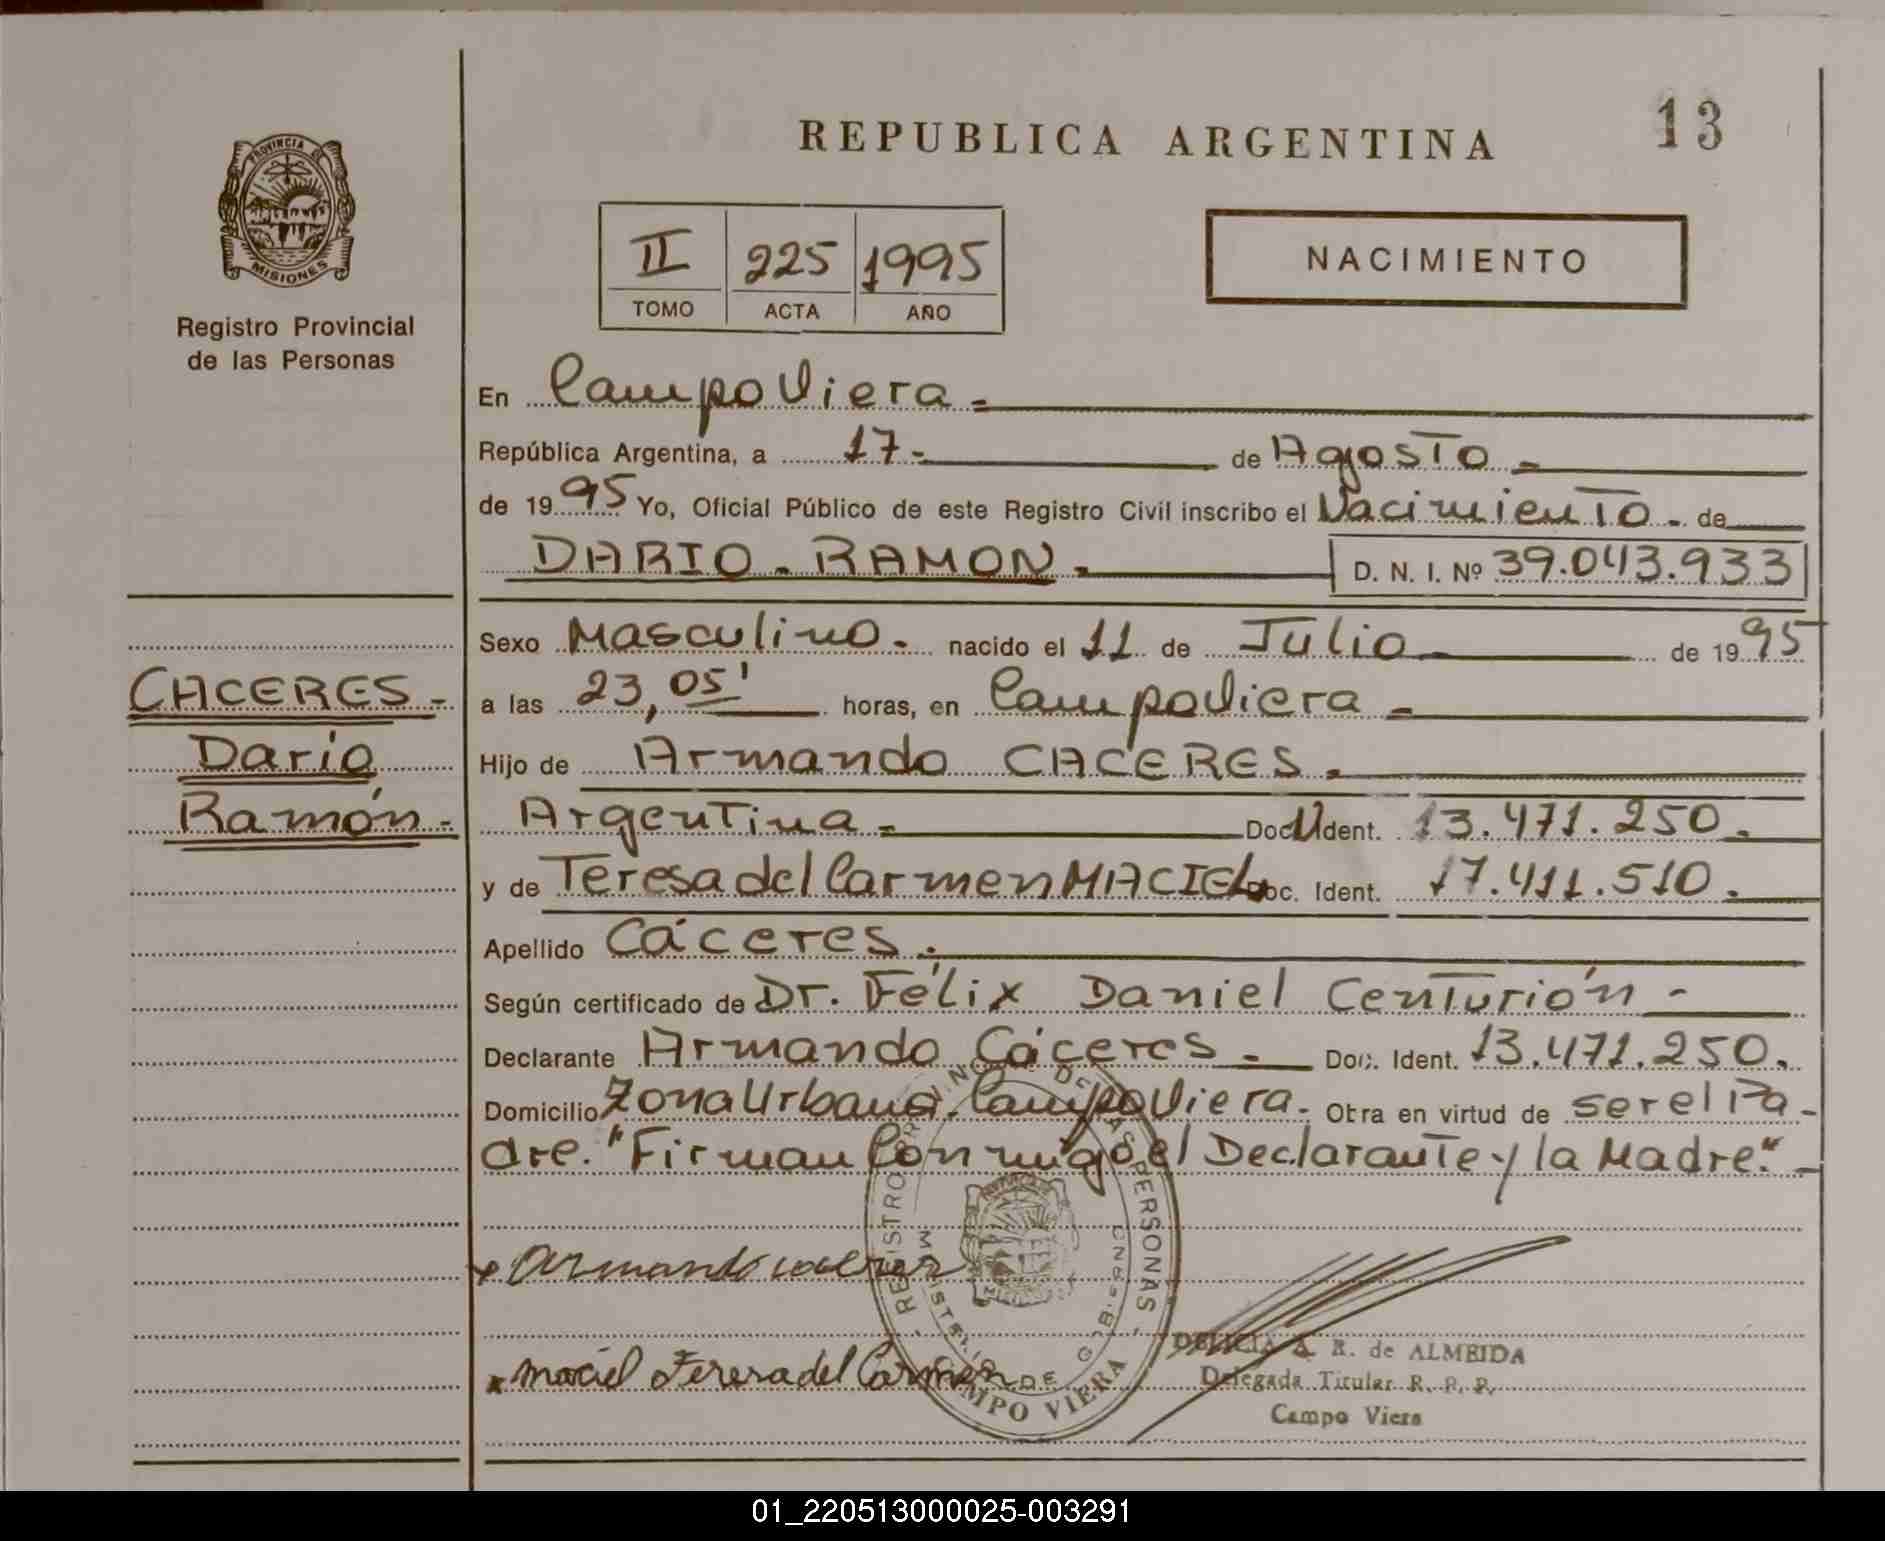 REPUBLICA ARGENTINA
13
PROVINCIA DE
MISIONES
Registro Provincial
de las Personas
II 225 1995
TOMO ACTA AÑO
NACIMIENTO
En Campo Viera -
República Argentina, a 17- de Agosto -
de 1995 Yo, Oficial Público de este Registro Civil inscribo el Nacimiento - de
DARIO - RAMON - D. N. I. Nº 39.043.933
Sexo Masculino - nacido el 11 de Julio - de 1995
a las 23,05' horas, en Campo Viera -
Hijo de Armando CACERES.
Argentina - Doc. Ident. 13.471.250.
y de Teresa del Carmen MACIEL Doc. Ident. 17.411.510.
Apellido Cáceres.
Según certificado de Dr. Félix Daniel Centurión -
Declarante Armando Cáceres - Doc. Ident. 13.471.250.
Domicilio Zona Urbana. Campo Viera. Otra en virtud de ser el Pa-
dre. "Firman Conmigo el Declarante y la Madre." -
CACERES -
Darío
Ramón -
Armando caceres
Maciel Teresa del Carmen
REGISTRO PROVINCIAL DE LAS PERSONAS
MINISTERIO DE GOBIERNO
CAMPO VIERA
DELICIA A. R. de ALMEIDA
Delegada Titular R. P. P.
Campo Viera
01_220513000025-003291